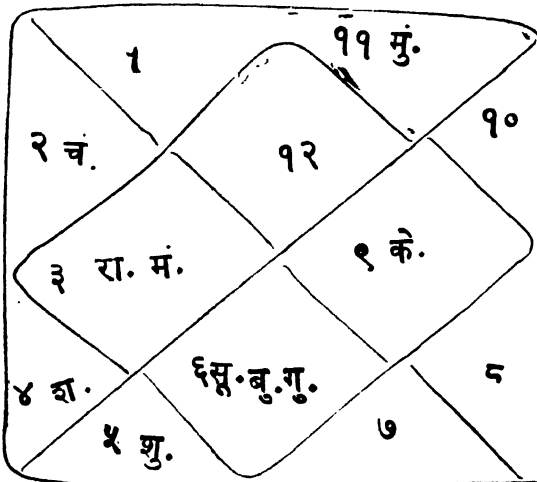 १
११ मुं.
२ चं.
१२
१०
३ रा. मं.
९ के.
४ श.
६सू.बु.गु.
८
५ शु.
७